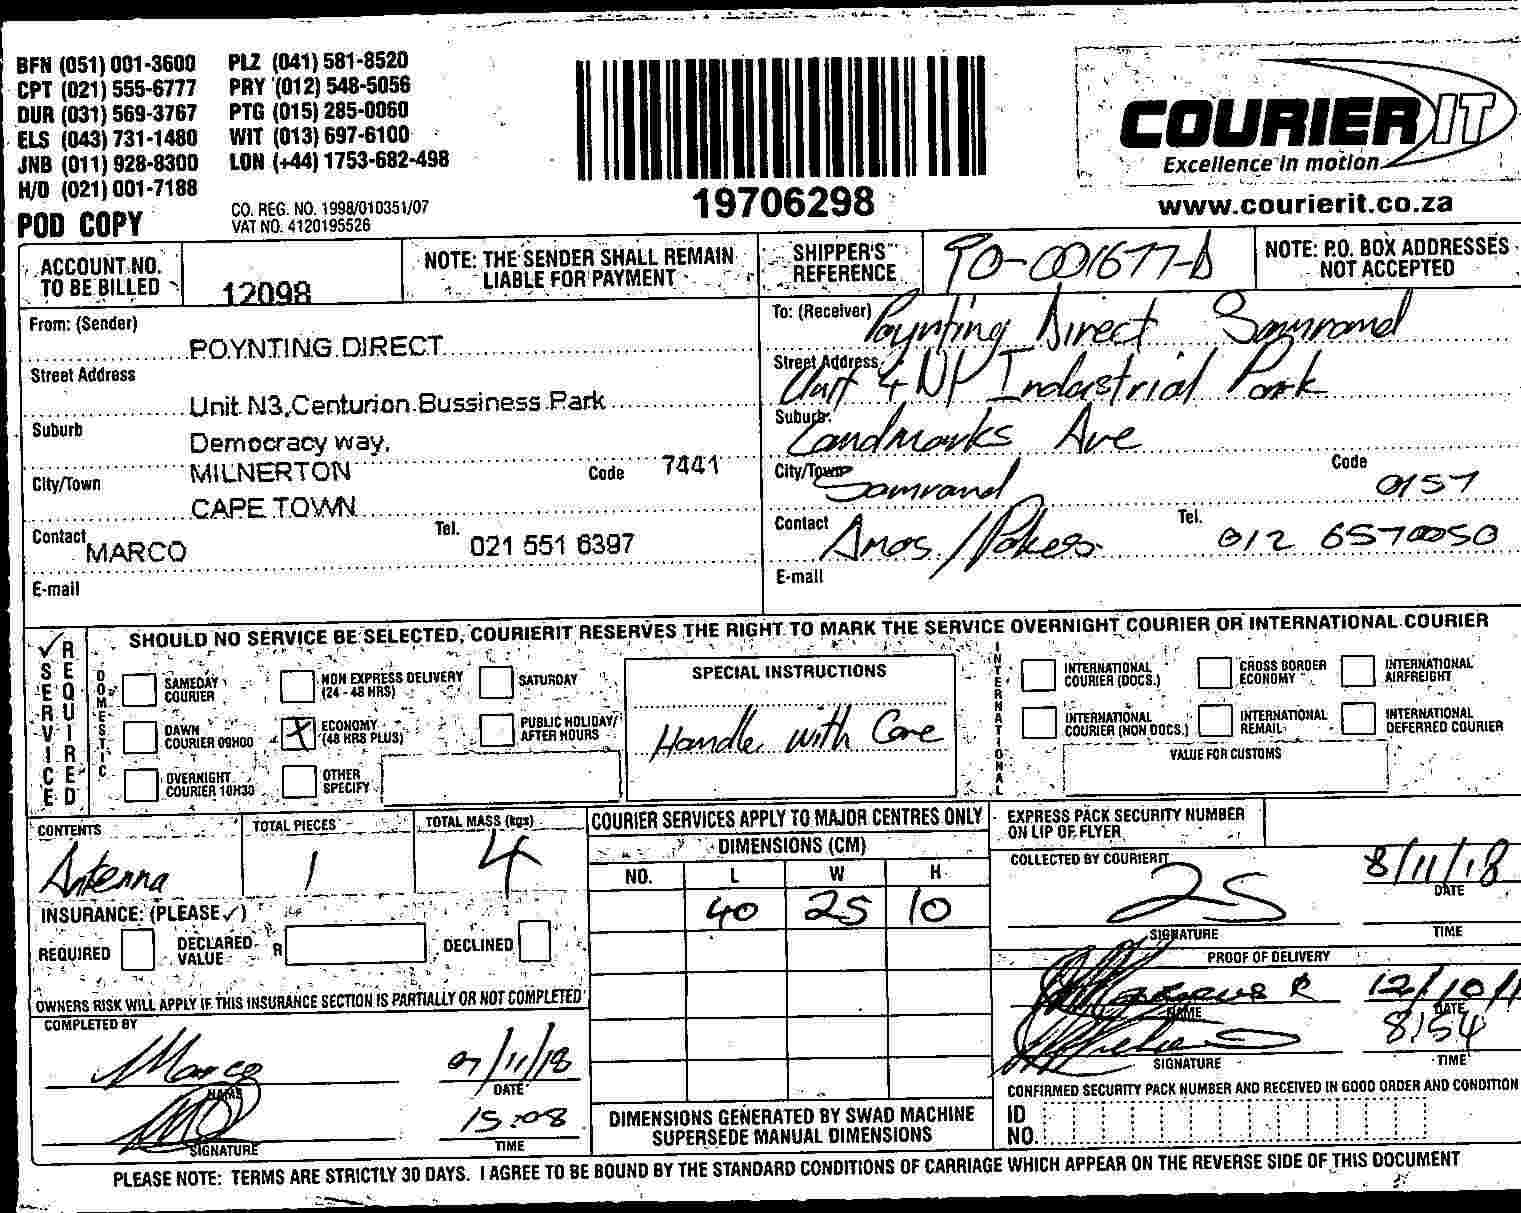 BFN (051) 001-3600 PLZ (041) 581-8520
CPT (021) 555-6777 PRY (012) 548-5056
DUR (031) 569-3767 PTG (015) 285-0060
ELS (043) 731-1480 WIT (013) 697-6100
JNB (011) 928-8300 LON (+44) 1753-682-498
H/O (021) 001-7188
POD COPY
CO. REG. NO. 1998/010351/07
VAT NO. 4120195526
19706298
COURIER IT
Excellence in motion
www.courierit.co.za
ACCOUNT NO. TO BE BILLED 12098
NOTE: THE SENDER SHALL REMAIN LIABLE FOR PAYMENT
SHIPPER'S REFERENCE PO-001677-A
NOTE: P.O. BOX ADDRESSES NOT ACCEPTED
From: (Sender)
POYNTING DIRECT
Street Address
Unit N3,Centurion Bussiness Park
Suburb
Democracy way,
City/Town
MILNERTON
Code 7441
CAPE TOWN
Contact MARCO
Tel. 021 551 6397
E-mail
To: (Receiver) Poynting Direct Samrand
Street Address Unit 4 NP Industrial Park
Suburb Landmarks Ave
City/Town Samrand
Code 0157
Contact Amos /
Tel. 012 6570050
E-mail
SERVICE REQUIRED
SHOULD NO SERVICE BE SELECTED, COURIERIT RESERVES THE RIGHT TO MARK THE SERVICE OVERNIGHT COURIER OR INTERNATIONAL COURIER
DOMESTIC
SAMEDAY COURIER
NON EXPRESS DELIVERY (24 - 48 HRS)
SATURDAY
DAWN COURIER 09H00
X ECONOMY (48 HRS PLUS)
PUBLIC HOLIDAY/ AFTER HOURS
OVERNIGHT COURIER 10H30
OTHER SPECIFY
SPECIAL INSTRUCTIONS
Handle with Care
INTERNATIONAL
INTERNATIONAL COURIER (DOCS.)
CROSS BORDER ECONOMY
INTERNATIONAL AIRFREIGHT
INTERNATIONAL COURIER (NON DOCS.)
INTERNATIONAL REMAIL
INTERNATIONAL DEFERRED COURIER
VALUE FOR CUSTOMS
CONTENTS Antenna
TOTAL PIECES 1
TOTAL MASS (kgs) 4
INSURANCE: (PLEASE ✓)
REQUIRED
DECLARED VALUE R
DECLINED
OWNERS RISK WILL APPLY IF THIS INSURANCE SECTION IS PARTIALLY OR NOT COMPLETED
COMPLETED BY
Marco
NAME
07/11/18
DATE
SIGNATURE
15:08
TIME
COURIER SERVICES APPLY TO MAJOR CENTRES ONLY
DIMENSIONS (CM)
NO. L W H
40 25 10
DIMENSIONS GENERATED BY SWAD MACHINE
SUPERSEDE MANUAL DIMENSIONS
EXPRESS PACK SECURITY NUMBER
ON LIP OF FLYER
COLLECTED BY COURIERIT
8/11/18
DATE
SIGNATURE
TIME
PROOF OF DELIVERY
12/10/1
NAME
DATE
8:54
SIGNATURE
TIME
CONFIRMED SECURITY PACK NUMBER AND RECEIVED IN GOOD ORDER AND CONDITION
ID NO.
PLEASE NOTE: TERMS ARE STRICTLY 30 DAYS. I AGREE TO BE BOUND BY THE STANDARD CONDITIONS OF CARRIAGE WHICH APPEAR ON THE REVERSE SIDE OF THIS DOCUMENT